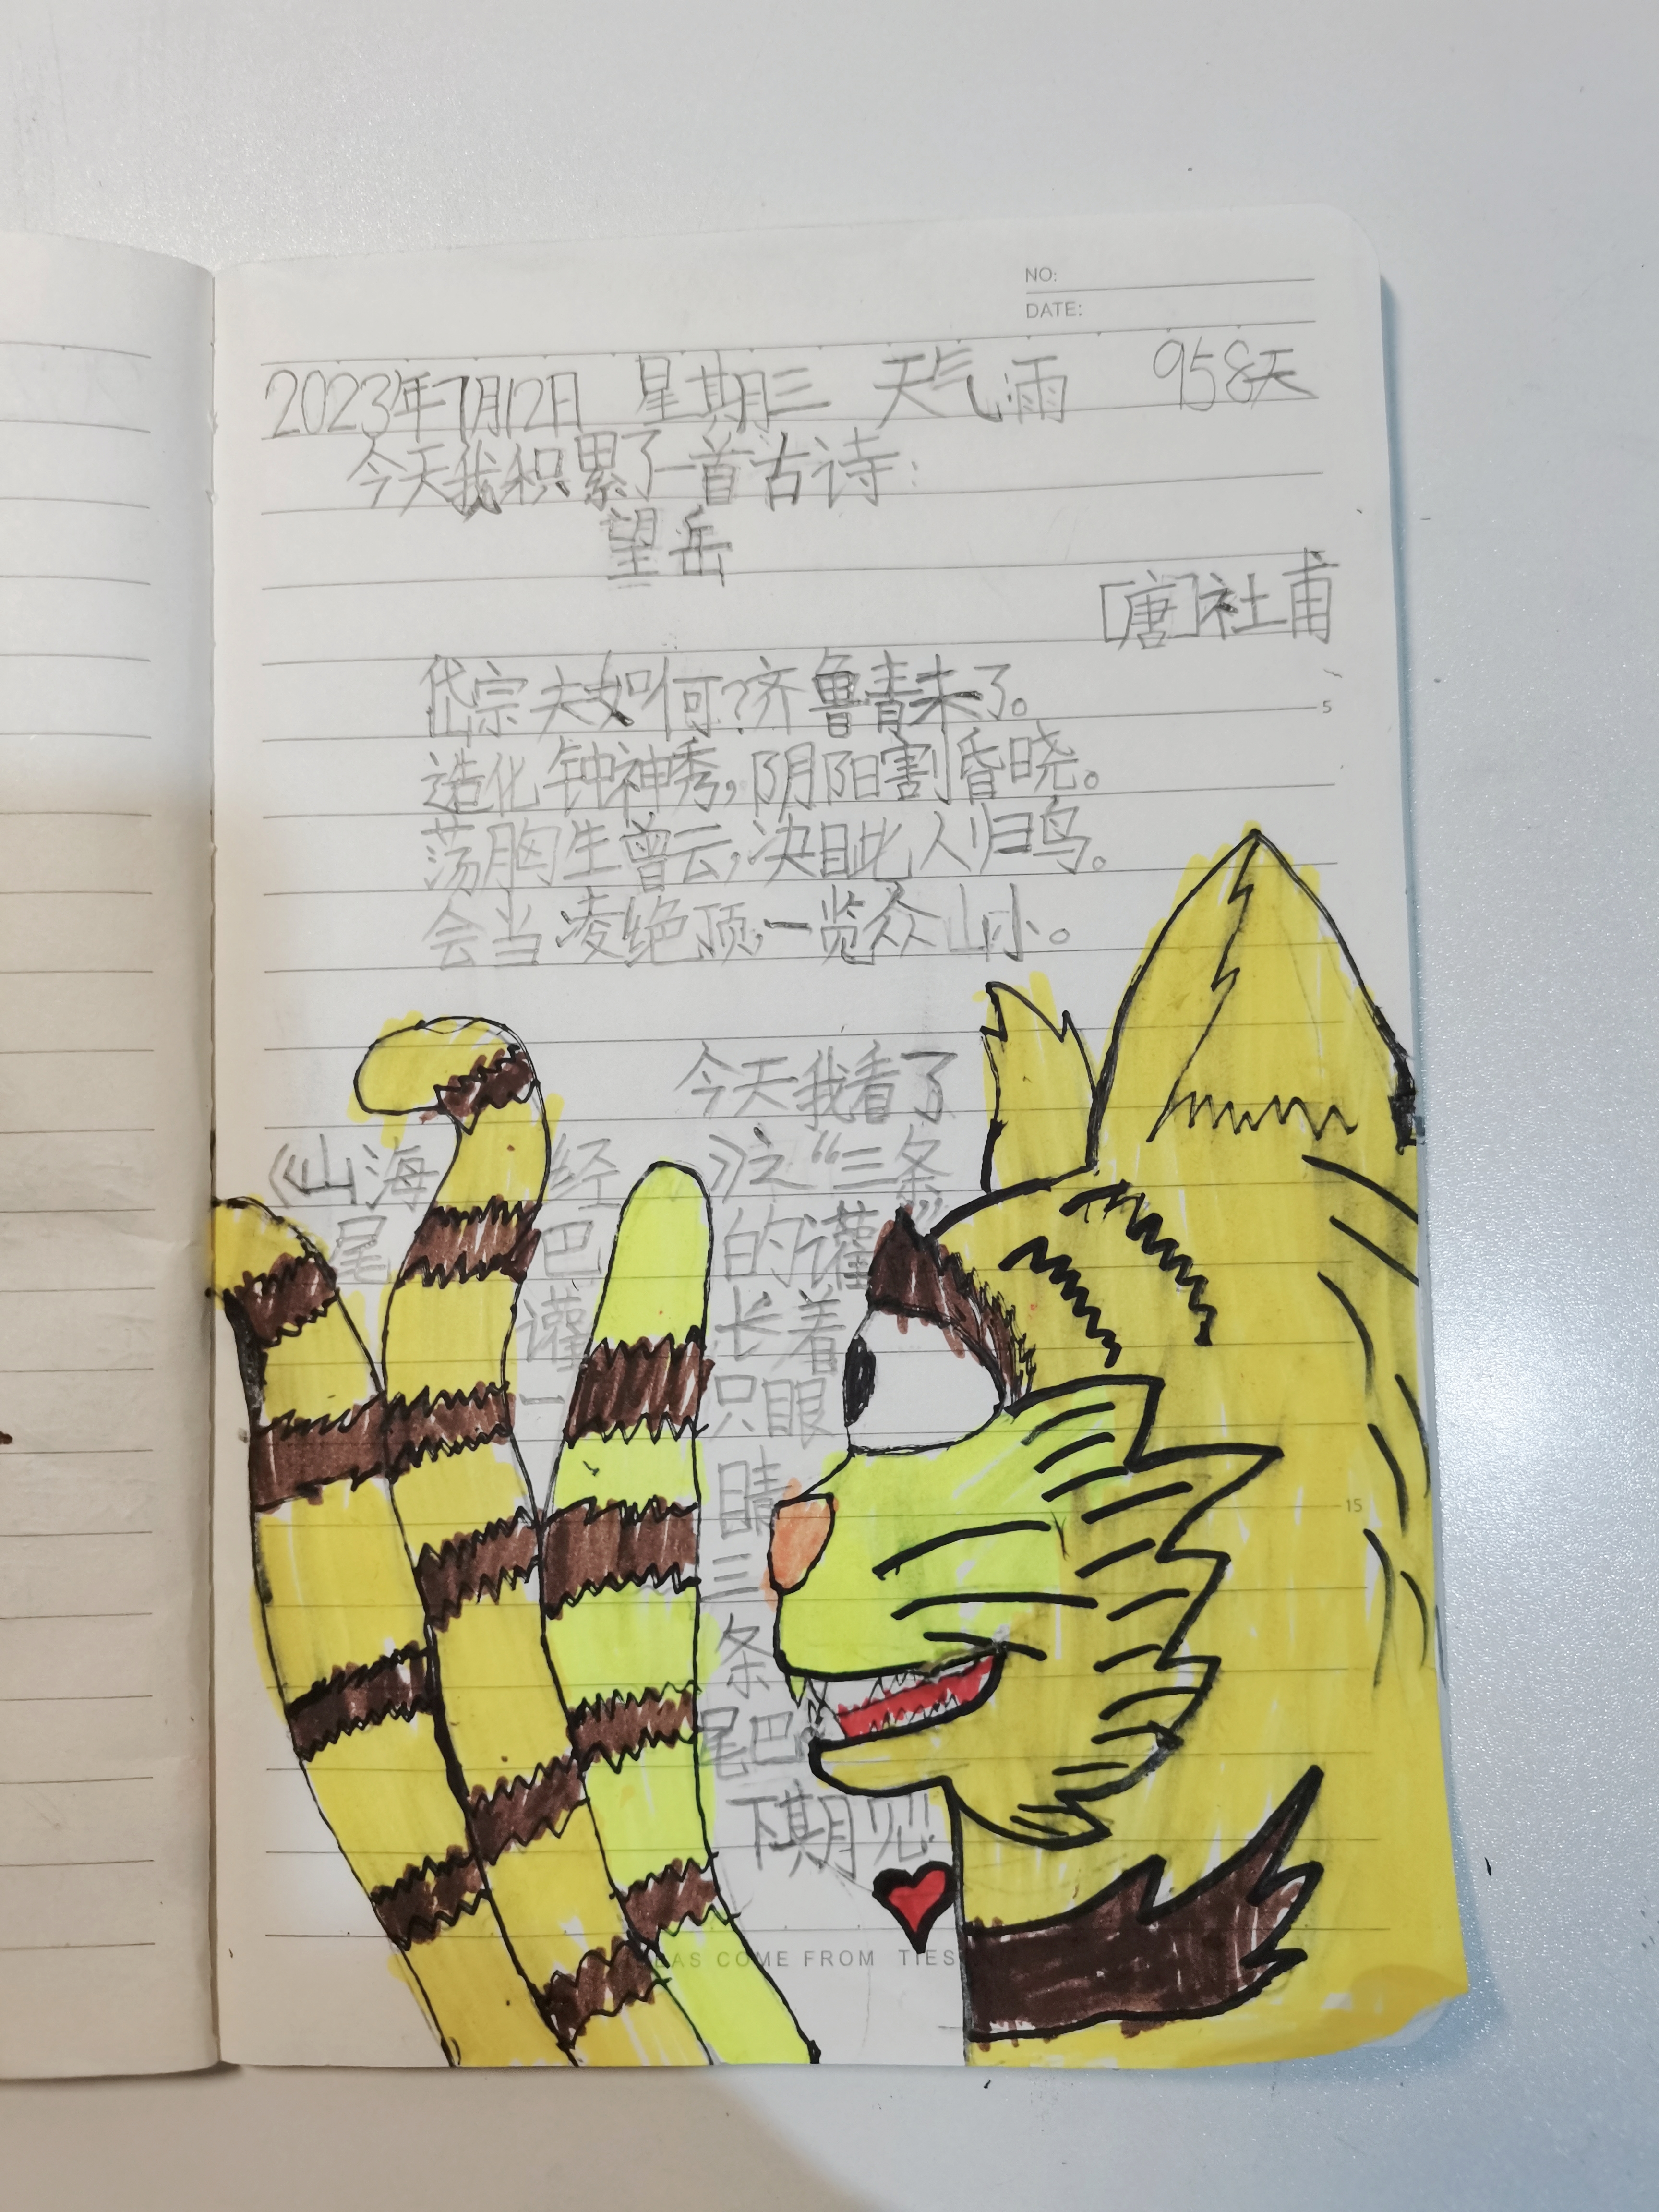 NO:
DATE:
2023年7月12日 星期三 天气雨 958天
今天我积累了一首古诗:
望岳
[唐]社甫
岱宗夫如何?齐鲁青未了。
5
造化钟神秀,阴阳割昏晓。
荡胸生曾云,决目此人归鸟。
会当凌绝顶,一览众山小。
今天我看了
《山海经》之“三条
尾巴的讙”
讙长着
一只眼
睛
15
三
条
尾巴
下期见
EAS COME FROM TIES